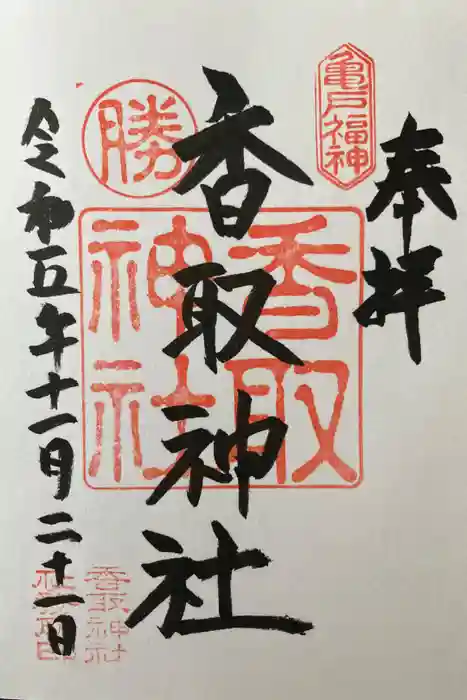 奉拝
亀戸福神
香取神社
勝
香取
神社
令和五年十一月二十一日
香取神社
社務所印